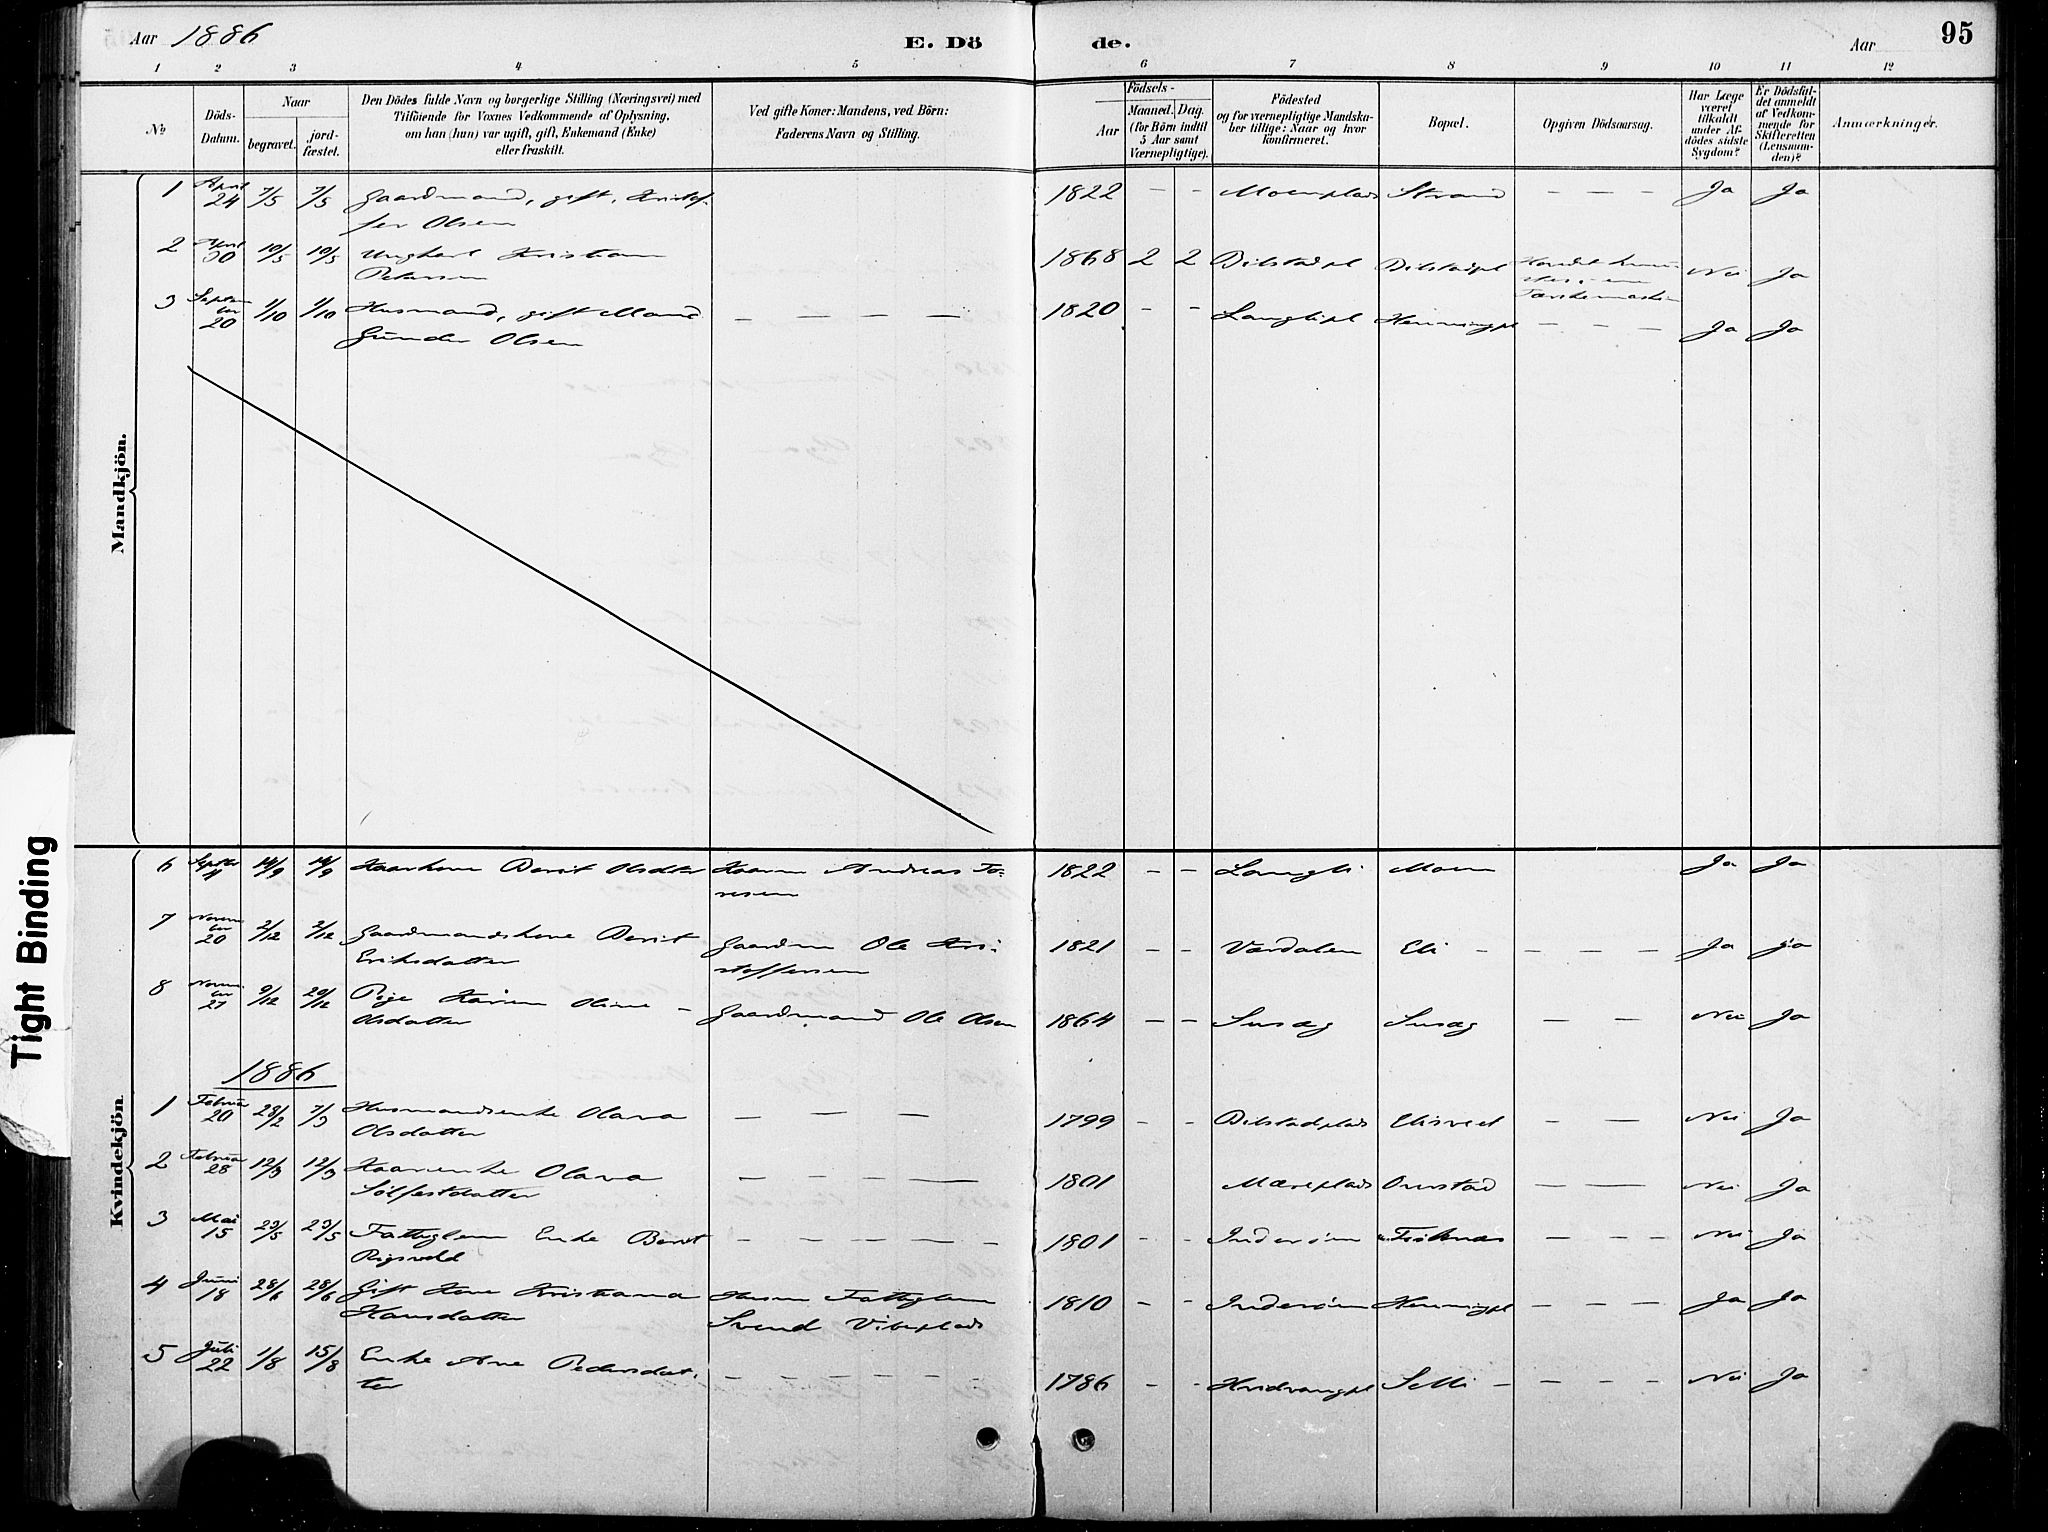 Aar 1886
E. Dö de.
Aar
95
1 2 3 4 5 6 7 8 9 10 11 12
No
Döds-
Datum.
Naar
begravet.
jord-
fæstet.
Den Dödes fulde Navn og borgerlige Stilling (Næringsvei) med
Tilföiende for Voxnes Vedkommende af Oplysning,
om han (hun) var ugift, gift, Enkemand (Enke)
eller fraskilt.
Ved gifte Koner: Mandens, ved Börn:
Faderens Navn og Stilling.
Födsels-
Aar
Maaned. Dag.
(for Börn indtil
5 Aar samt
Værnepligtige).
Födested
og for værnepligtige Mandska-
ber tillige: Naar og hvor
konfirmeret.
Bopæl.
Opgiven Dödsaarsag.
Har Læge
været
tilkaldt
under Af-
dödes sidste
Sygdom?
Er Dödsfal-
det anmeldt
af Vedkom-
mende for
Skifteretten
(Lensman-
den)?
Anmærkninger.
Mandkjön.
1 April 24 7/5 7/5 Gaardmand, gift, Kristof-
fer Olsen
1822 - - Moenplads Strand - - - Ja Ja
2 April 30 10/5 10/5 Ungkarl Kristian
Petersen
1868 2 2 Bilstadpl Bilstadpl
Tærskemaskin
Nei Ja
3 Septem
ber
20 1/10 1/10 Husmand, gift Mand
Gunder Olsen
- - - -
1820 - - Langlipl Henningpl - - - Ja Ja
Kvindekjön
6 Septbr 4 14/9 14/9 Kaarkone Berit Olsdtr Kaarm Andreas To-
resen
1822 - - Langli Moen Ja Ja
7 Novem
ber
20 2/12 2/12 Gaardmandskone Berit
Eriksdatter
Gaardm Ole Kri-
stoffersen
1821 - - Værdalen Eli - - - - Ja ja
8 Novem
ber
27 9/12 20/12 Pige Karen Oline -
Olsdatter
Gaardmand Ole Olsen
1864 - - Susæg Susæg - - Nei Ja
1886
1 Februar
20 28/2 7/3 Husmandsenke Olava
Olsdatter
- - -
1799 - - Bilstadplads Elisvet - - Nei Ja
2 Februar
28 12/3 12/3 Kaarenke Olava
Sølfestdatter
- - - -
1801 Mæreplads Omstad - - Nei Ja
3 Mai
15 23/5 23/5 Fattiglem Enke Berit
- - - - -
1801 - - Inderøen - - - Nei Ja
4 Juni
18 28/6 28/6 Gift Kone Kristiana
Hansdatter
Husm Fattiglem
Svend Vibeplads
1810 - - Inderøen Henningpl - - - Ja Ja
5 Juli
22 1/8 15/8 Enke Ane Pedersdat-
ter
- - - - - -
1786 - - Hvidvangpl Selli - - - - Nei Ja
Tight Binding